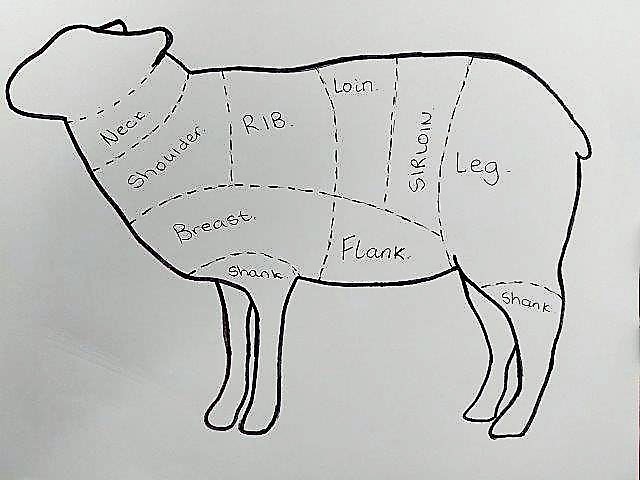 Neck.
Shoulder.
RIB.
Loin.
SIRLOIN.
Leg.
Breast.
Flank.
Shank
Shank